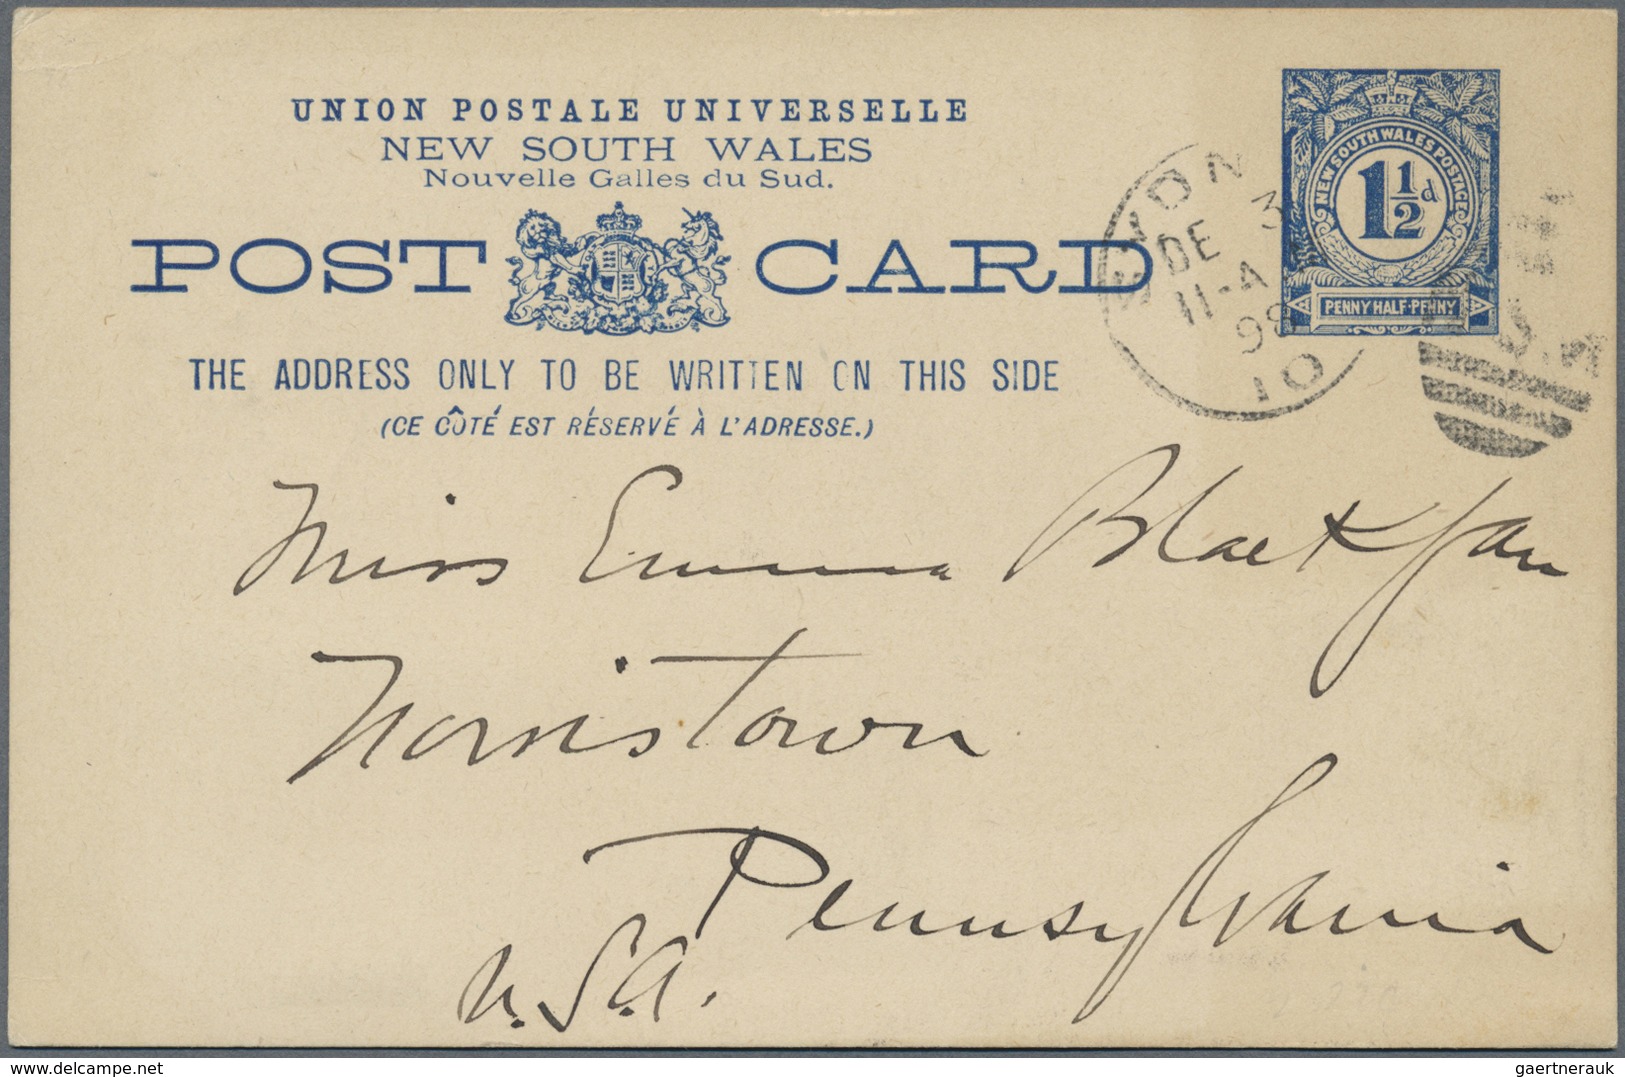 UNION POSTALE UNIVERSELLE
NEW SOUTH WALES
Nouvelle Galles du Sud.
POST CARD
THE ADDRESS ONLY TO BE WRITTEN ON THIS SIDE
(CE CÔTÉ EST RÉSERVÉ À L'ADRESSE.)
NEW SOUTH WALES POSTAGE
1 1/2 d
PENNY HALF-PENNY
SYDN
DE 3
11-A
98
10
Miss Emma Blackfan
Norristown
Pennsylvania
U.S.A.
delcampe.net
gaertnerauk